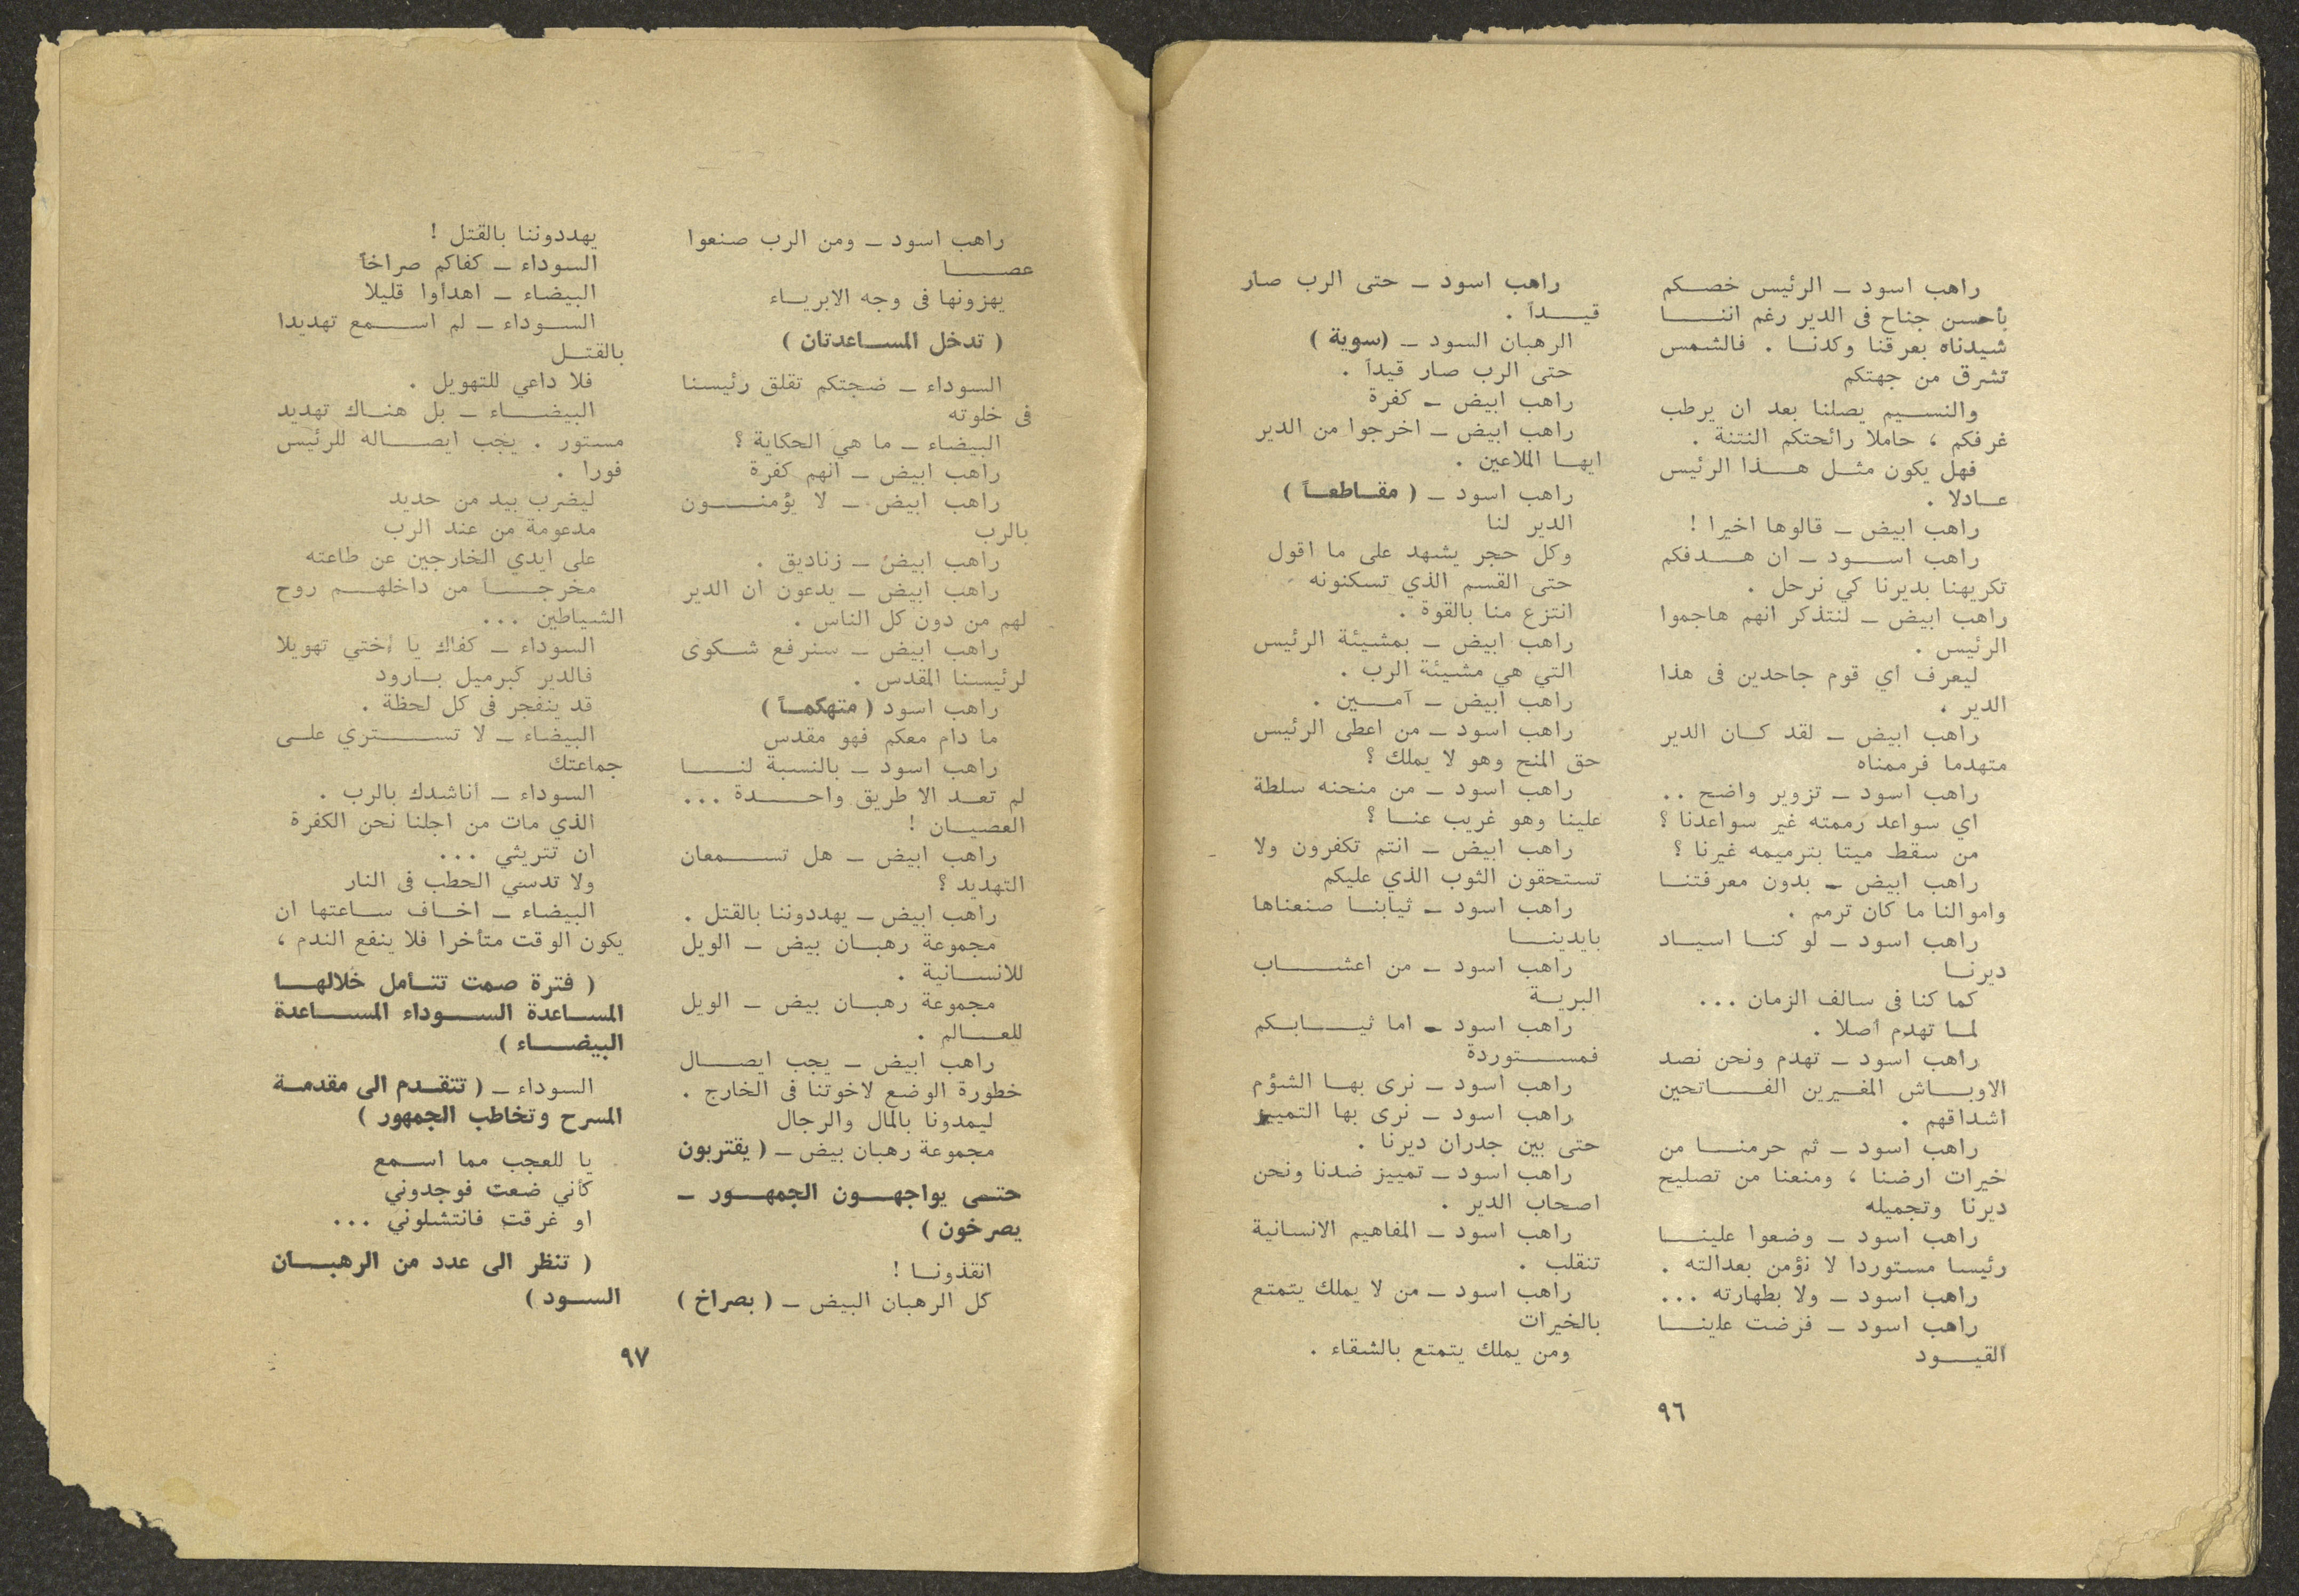 راهب اسود ــ الرئيس خصكم
بأحسن جناح فى الدير رغم اننا
شيدناه بعرقنا وكدنا . فالشمس
تشرق من جهتكم
والنسيم يصلنا بعد ان يرطب
غرفكم ، حاملا رائحتكم النتنة .
فهل يكون مثل هذا الرئيس
عادلا .
راهب ابيض ــ قالوها اخيرا !
راهب اسود ــ ان هدفكم
تكريهنا بديرنا كي نرحل .
راهب ابيض ــ لنتذكر انهم هاجموا
الرئيس .
ليعرف اي قوم جاحدين فى هذا
الدير .
راهب ابيض ــ لقد كان الدير
متهدما فرممناه
راهب اسود ــ تزوير واضح ..
اي سواعد رممته غير سواعدنا ؟
من سقط ميتا بترميمه غيرنا ؟
راهب ابيض ــ بدون معرفتنا
واموالنا ما كان ترمم .
راهب اسود ــ لو كنا اسياد
ديرنا
كما كنا فى سالف الزمان ...
لما تهدم أصلا .
راهب اسود ــ تهدم ونحن نصد
الاوباش المغيرين الفاتحين
اشداقهم .
راهب اسود ــ ثم حرمنا من
خيرات ارضنا ، ومنعنا من تصليح
ديرنا وتجميله
راهب اسود ــ وضعوا علينا
رئيسا مستوردا لا نؤمن بعدالته .
راهب اسود ــ ولا بطهارته ...
راهب اسود ــ فرضت علينا
القيود
راهب اسود ــ حتى الرب صار
قيداً .
الرهبان السود ــ (سوية )
حتى الرب صار قيداً .
راهب ابيض ــ كفرة
راهب ابيض ــ اخرجوا من الدير
ايها الملاعين .
راهب اسود ــ ( مقاطعاً )
الدير لنا
وكل حجر يشهد على ما اقول
حتى القسم الذي تسكنونه
انتزع منا بالقوة .
راهب ابيض ــ بمشيئة الرئيس
التي هي مشيئة الرب .
راهب ابيض ــ آمين .
راهب اسود ــ من اعطى الرئيس
حق المنح وهو لا يملك ؟
راهب اسود ــ من منحنه سلطة
علينا وهو غريب عنا ؟
راهب ابيض ــ انتم تكفرون ولا
تستحقون الثوب الذي عليكم
راهب اسود ــ ثيابنا صنعناها
بايدينا
راهب اسود ــ من اعشاب
البرية
راهب اسود ــ اما ثيابكم
فمستوردة
راهب اسود ــ نرى بها الشؤم
راهب اسود ــ نرى بها التمييز
حتى بين جدران ديرنا .
راهب اسود ــ تمييز ضدنا ونحن
اصحاب الدير .
راهب اسود ــ المفاهيم الانسانية
تنقلب .
راهب اسود ــ من لا يملك يتمتع
بالخيرات
ومن يملك يتمتع بالشقاء .
٩٦
راهب اسود ــ ومن الرب صنعوا
عصا
يهزونها فى وجه الابرياء
( تدخل المساعدتان )
السوداء ــ ضجتكم تقلق رئيسنا
فى خلوته
البيضاء ــ ما هي الحكاية ؟
راهب ابيض ــ انهم كفرة
راهب ابيض ــ لا يؤمنون
بالرب
راهب ابيض ــ زناديق .
راهب ابيض ــ يدعون ان الدير
لهم من دون كل الناس .
راهب ابيض ــ سنرفع شكوى
لرئيسنا المقدس .
راهب اسود ( متهكماً )
ما دام معكم فهو مقدس
راهب اسود ــ بالنسبة لنا
لم تعد الا طريق واحدة ...
العصيان !
راهب ابيض ــ هل تسمعان
التهديد ؟
راهب ابيض ــ يهددوننا بالقتل .
مجموعة رهبان بيض ــ الويل
للانسانية .
مجموعة رهبان بيض ــ الويل
للعالم .
راهب ابيض ــ يجب ايصال
خطورة الوضع لاخوتنا فى الخارج .
ليمدونا بالمال والرجال
مجموعة رهبان بيض ــ ( يقتربون
حتى يواجهون الجمهور ــ
يصرخون )
انقذونا !
كل الرهبان البيض ــ ( بصراخ )
يهددوننا بالقتل !
السوداء ــ كفاكم صراخاً
البيضاء ــ اهدأوا قليلا
السوداء ــ لم اسمع تهديدا
بالقتل
فلا داعي للتهويل .
البيضاء ــ بل هناك تهديد
مستور . يجب ايصاله للرئيس
فورا .
ليضرب بيد من حديد
مدعومة من عند الرب
على ايدي الخارجين عن طاعته
مخرجاً من داخلهم روح
الشياطين ...
السوداء ــ كفاك يا اختي تهويلا
فالدير كبرميل بارود
قد ينفجر فى كل لحظة .
البيضاء ــ لا تستري على
جماعتك
السوداء ــ اناشدك بالرب .
الذي مات من اجلنا نحن الكفرة
ان تتريثي ...
ولا تدسي الحطب فى النار
البيضاء ــ اخاف ساعتها ان
يكون الوقت متأخرا فلا ينفع الندم ،
( فترة صمت تتأمل خلالها
المساعدة السوداء المساعدة
البيضاء )
السوداء ــ ( تتقدم الى مقدمة
المسرح وتخاطب الجمهور )
يا للعجب مما اسمع
كأني ضعت فوجدوني
او غرقت فانتشلوني ...
( تنظر الى عدد من الرهبان
السود )
٩٧